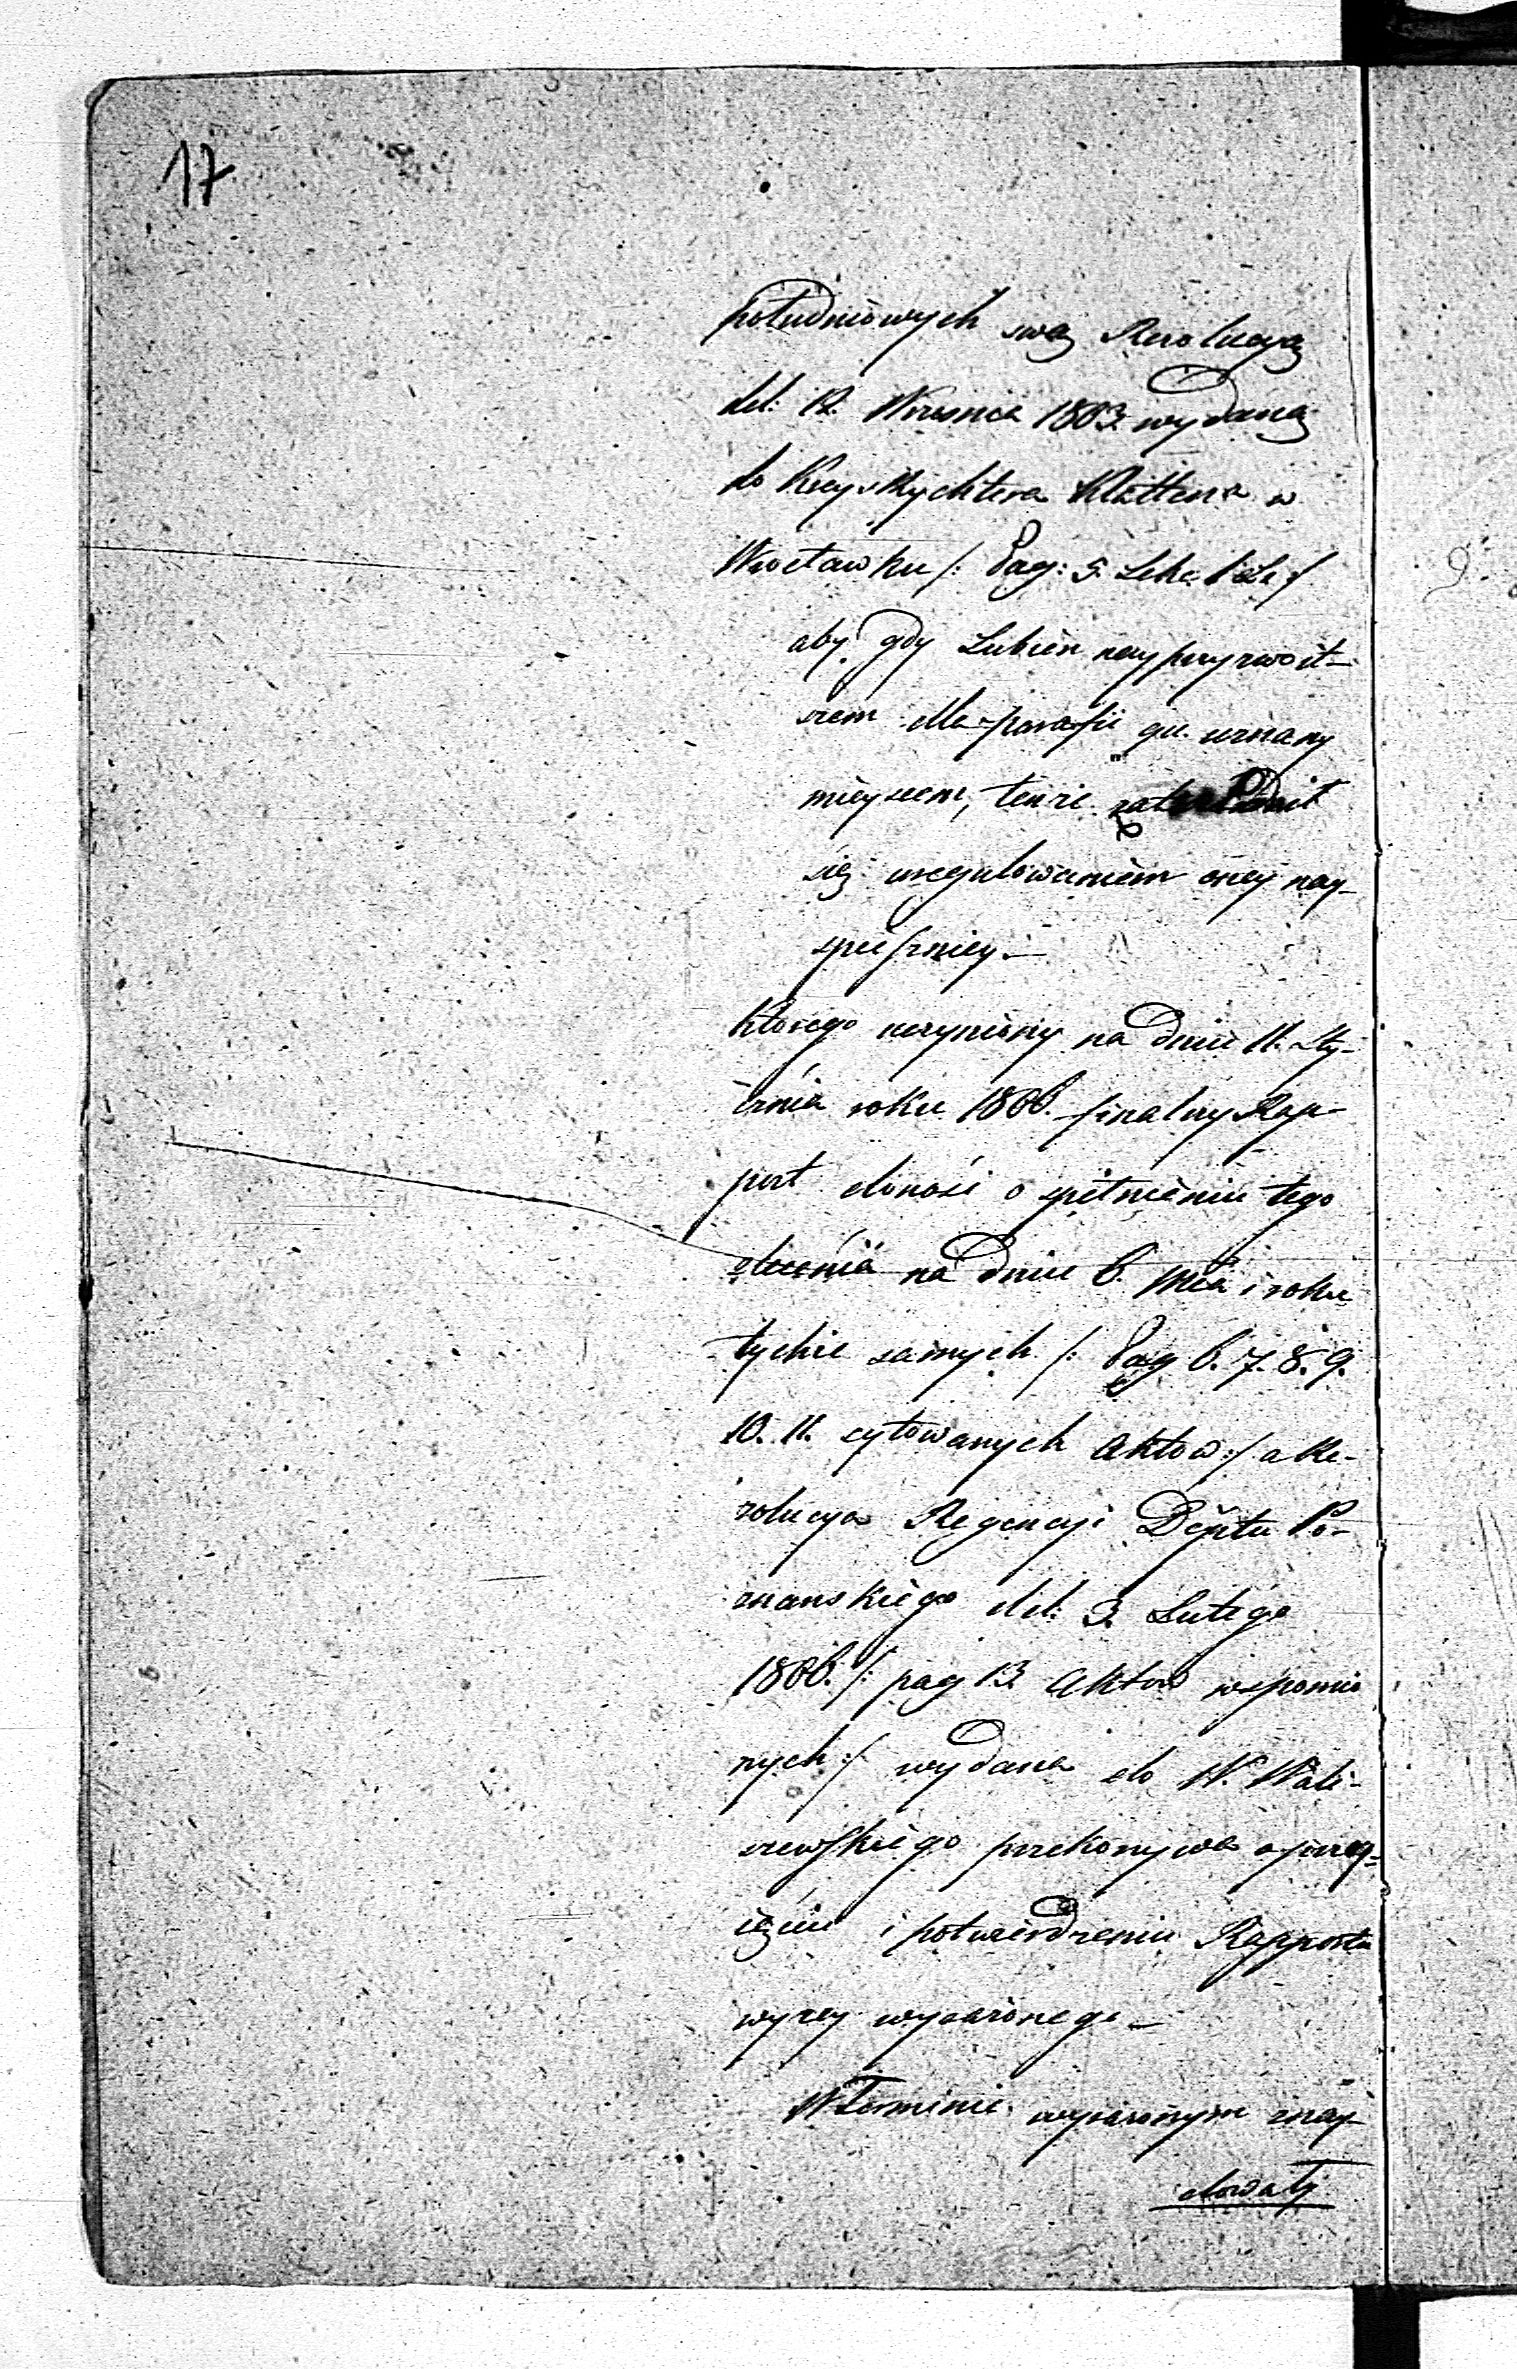 17
południowych swą Rezolucyą
ddt: 12. Wresnia 1803. wydaną
do Kreys Rychtera Klattena w
Wrocławku /: Pag: 5.
aby gdy Lubień nayprzyzwoit-
szem dla parafii gu. uznany
mieyscem, tenże zatrudnił
się uregulowaniem oney nay-
spieszniey. —
Którego uczyniony na dniu 11. Sty-
cznia roku 1806. finalny Rap-
port donosi o spełnieniu tego
zlecenia na dniu 6. Mca i roku
tychże samych /: Pag 6. 7. 8. 9.
10. 11. cytowanych Aktow :/ a Re-
zolucya Regencyi Deptu Po-
znanskiego ddt: 3. Lutego
1806. /: pag 13. Aktow wspomnio
nych :/ wydana do W. Wali-
szewskiego przekonywa o przy-
ięciu i potwierdzeniu Rapportu
wyzey wyrażonego —
W Terminie wyrażonym znay-
dowały